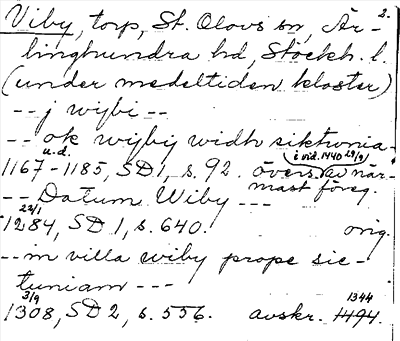 2.
Viby, torp, St. Olovs sn, Är-
linghundra hd, Stockh. l.
(under medeltiden kloster)
-- j wijbi --
-- ok wijbij widh siktwnia-
u.d. i vid. 1440 29/9
1167-1185, SD 1, s. 92. övers. av när-
mast föreg.
-- Datum Wiby ---
22/1
1284, SD 1, s. 640. orig.
-- in villa wiby prope sic-
tuniam ---
3/9 1344
1308, SD 2, s. 556. avskr. 1494.